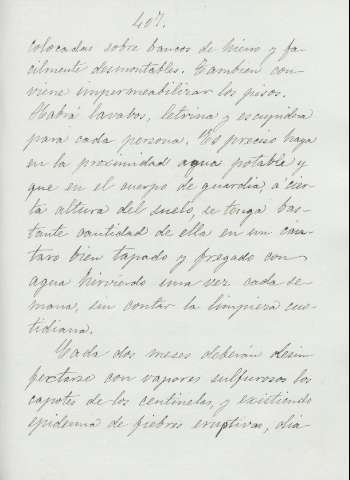 407.
colocadas sobre bancos de hierro y fa-
cilmente desmontables. Tambien con-
viene impermeabilizar los pisos.
Habrá lavabos, letrina y escupidera
para cada persona. Es preciso haya
en la proximidad agua potable y
que en el cuerpo de guardia, á cier-
ta altura del suelo, se tenga bas-
tante cantidad de ella en un cán-
taro bien tapado y fregado con
agua hirviendo una vez cada se-
mana, sin contar la limpieza cuo-
tidiana.
Cada dos meses deberán desin-
fectarse con vapores sulfurosos los
capotes de los centinelas, y existiendo
epidemia de fiebres eruptivas, dia-